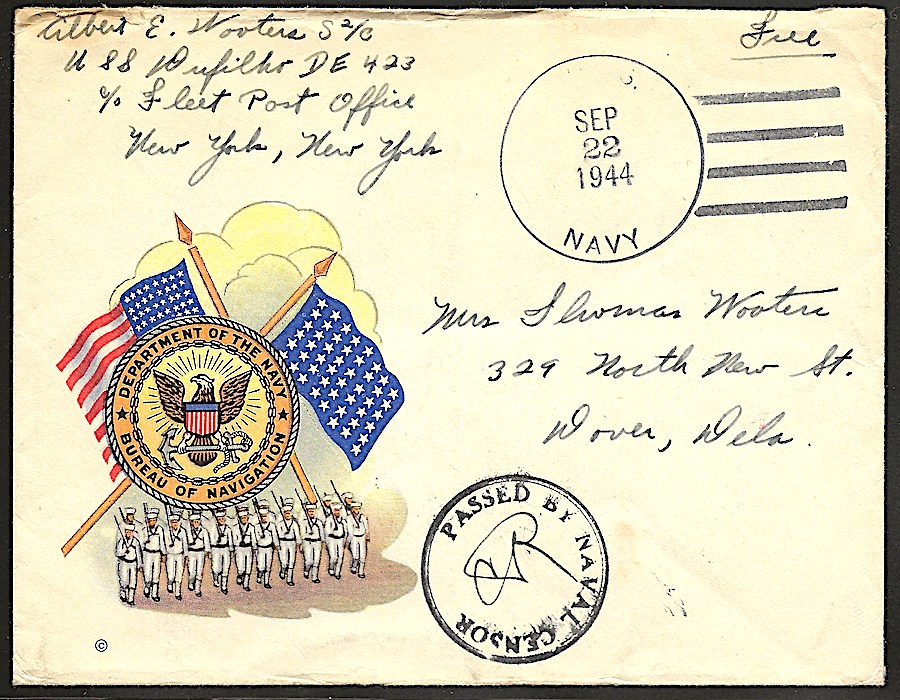 Gilbert E. Wooters S2/c
U S S Dufilho DE 423
c/o Fleet Post Office
New York, New York
Free
SEP
22
1944
NAVY
Mrs Thomas Wooters
329 North New St.
Dover, Dela.
DEPARTMENT OF THE NAVY
BUREAU OF NAVIGATION
PASSED BY NAVAL CENSOR
©